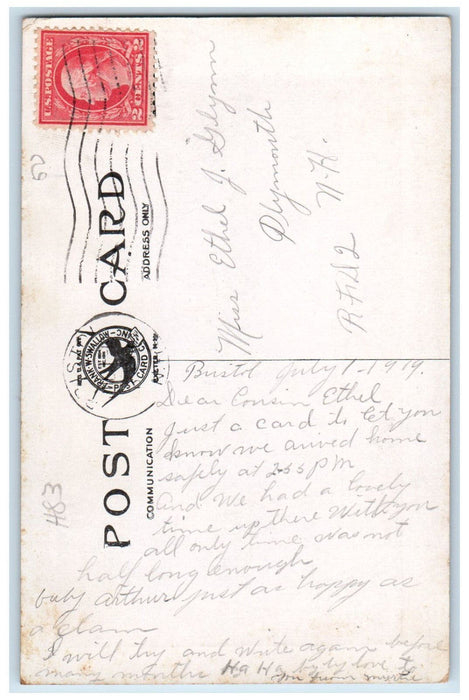 U.S. POSTAGE
2 CENTS 2
60
POST CARD
ADDRESS ONLY
COMMUNICATION
FRANK W. SWALLOW
POST CARD CO. INC
EXETER N.H.
483
Miss Ethel J. Glynn
Plymouth
N. H.
RFD 2
Bristol July 1 - 1919.
Dear Cousin Ethel
Just a card to let you
know we arived home
safely at 2-55 PM
And We had a lovely
time up there With you
all only time was not
half long enough
baby Arthur just as happy as
a Clam
I will try and write again before
many months Ha Ha by by love to
you from